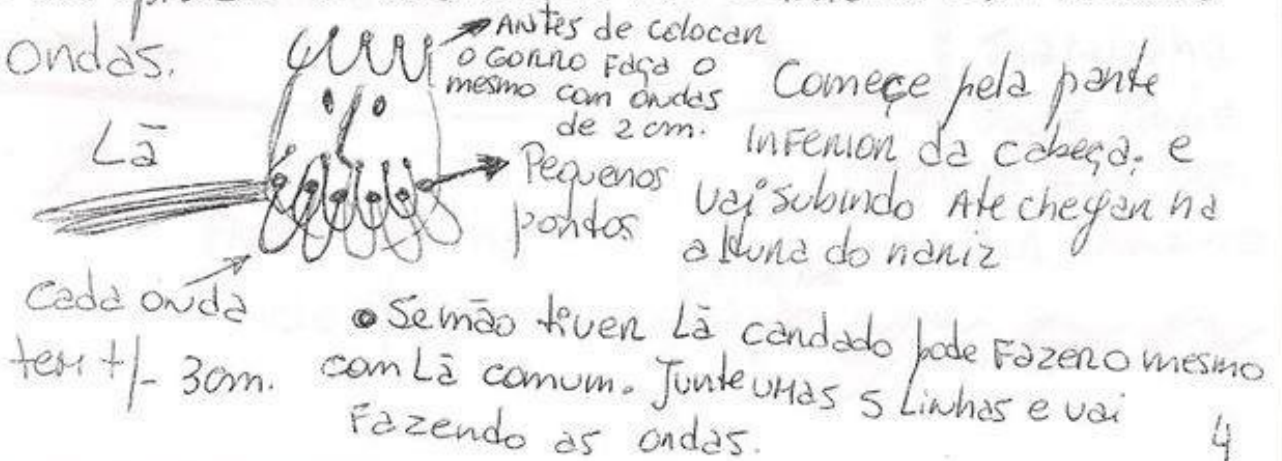 ondas.
Lã
Antes de colocar
o gorro faça o
mesmo com ondas
de 2 cm.
Pequenos
pontos
Começe pela parte
inferior da cabeça. e
vai subindo Ate chegar na
altura do nariz
Cada onda
tem +/- 3cm.
Se não tiver Lã cardado pode Fazer o mesmo
com Lã comum. Junte umas 5 Linhas e vai
Fazendo as ondas.
4